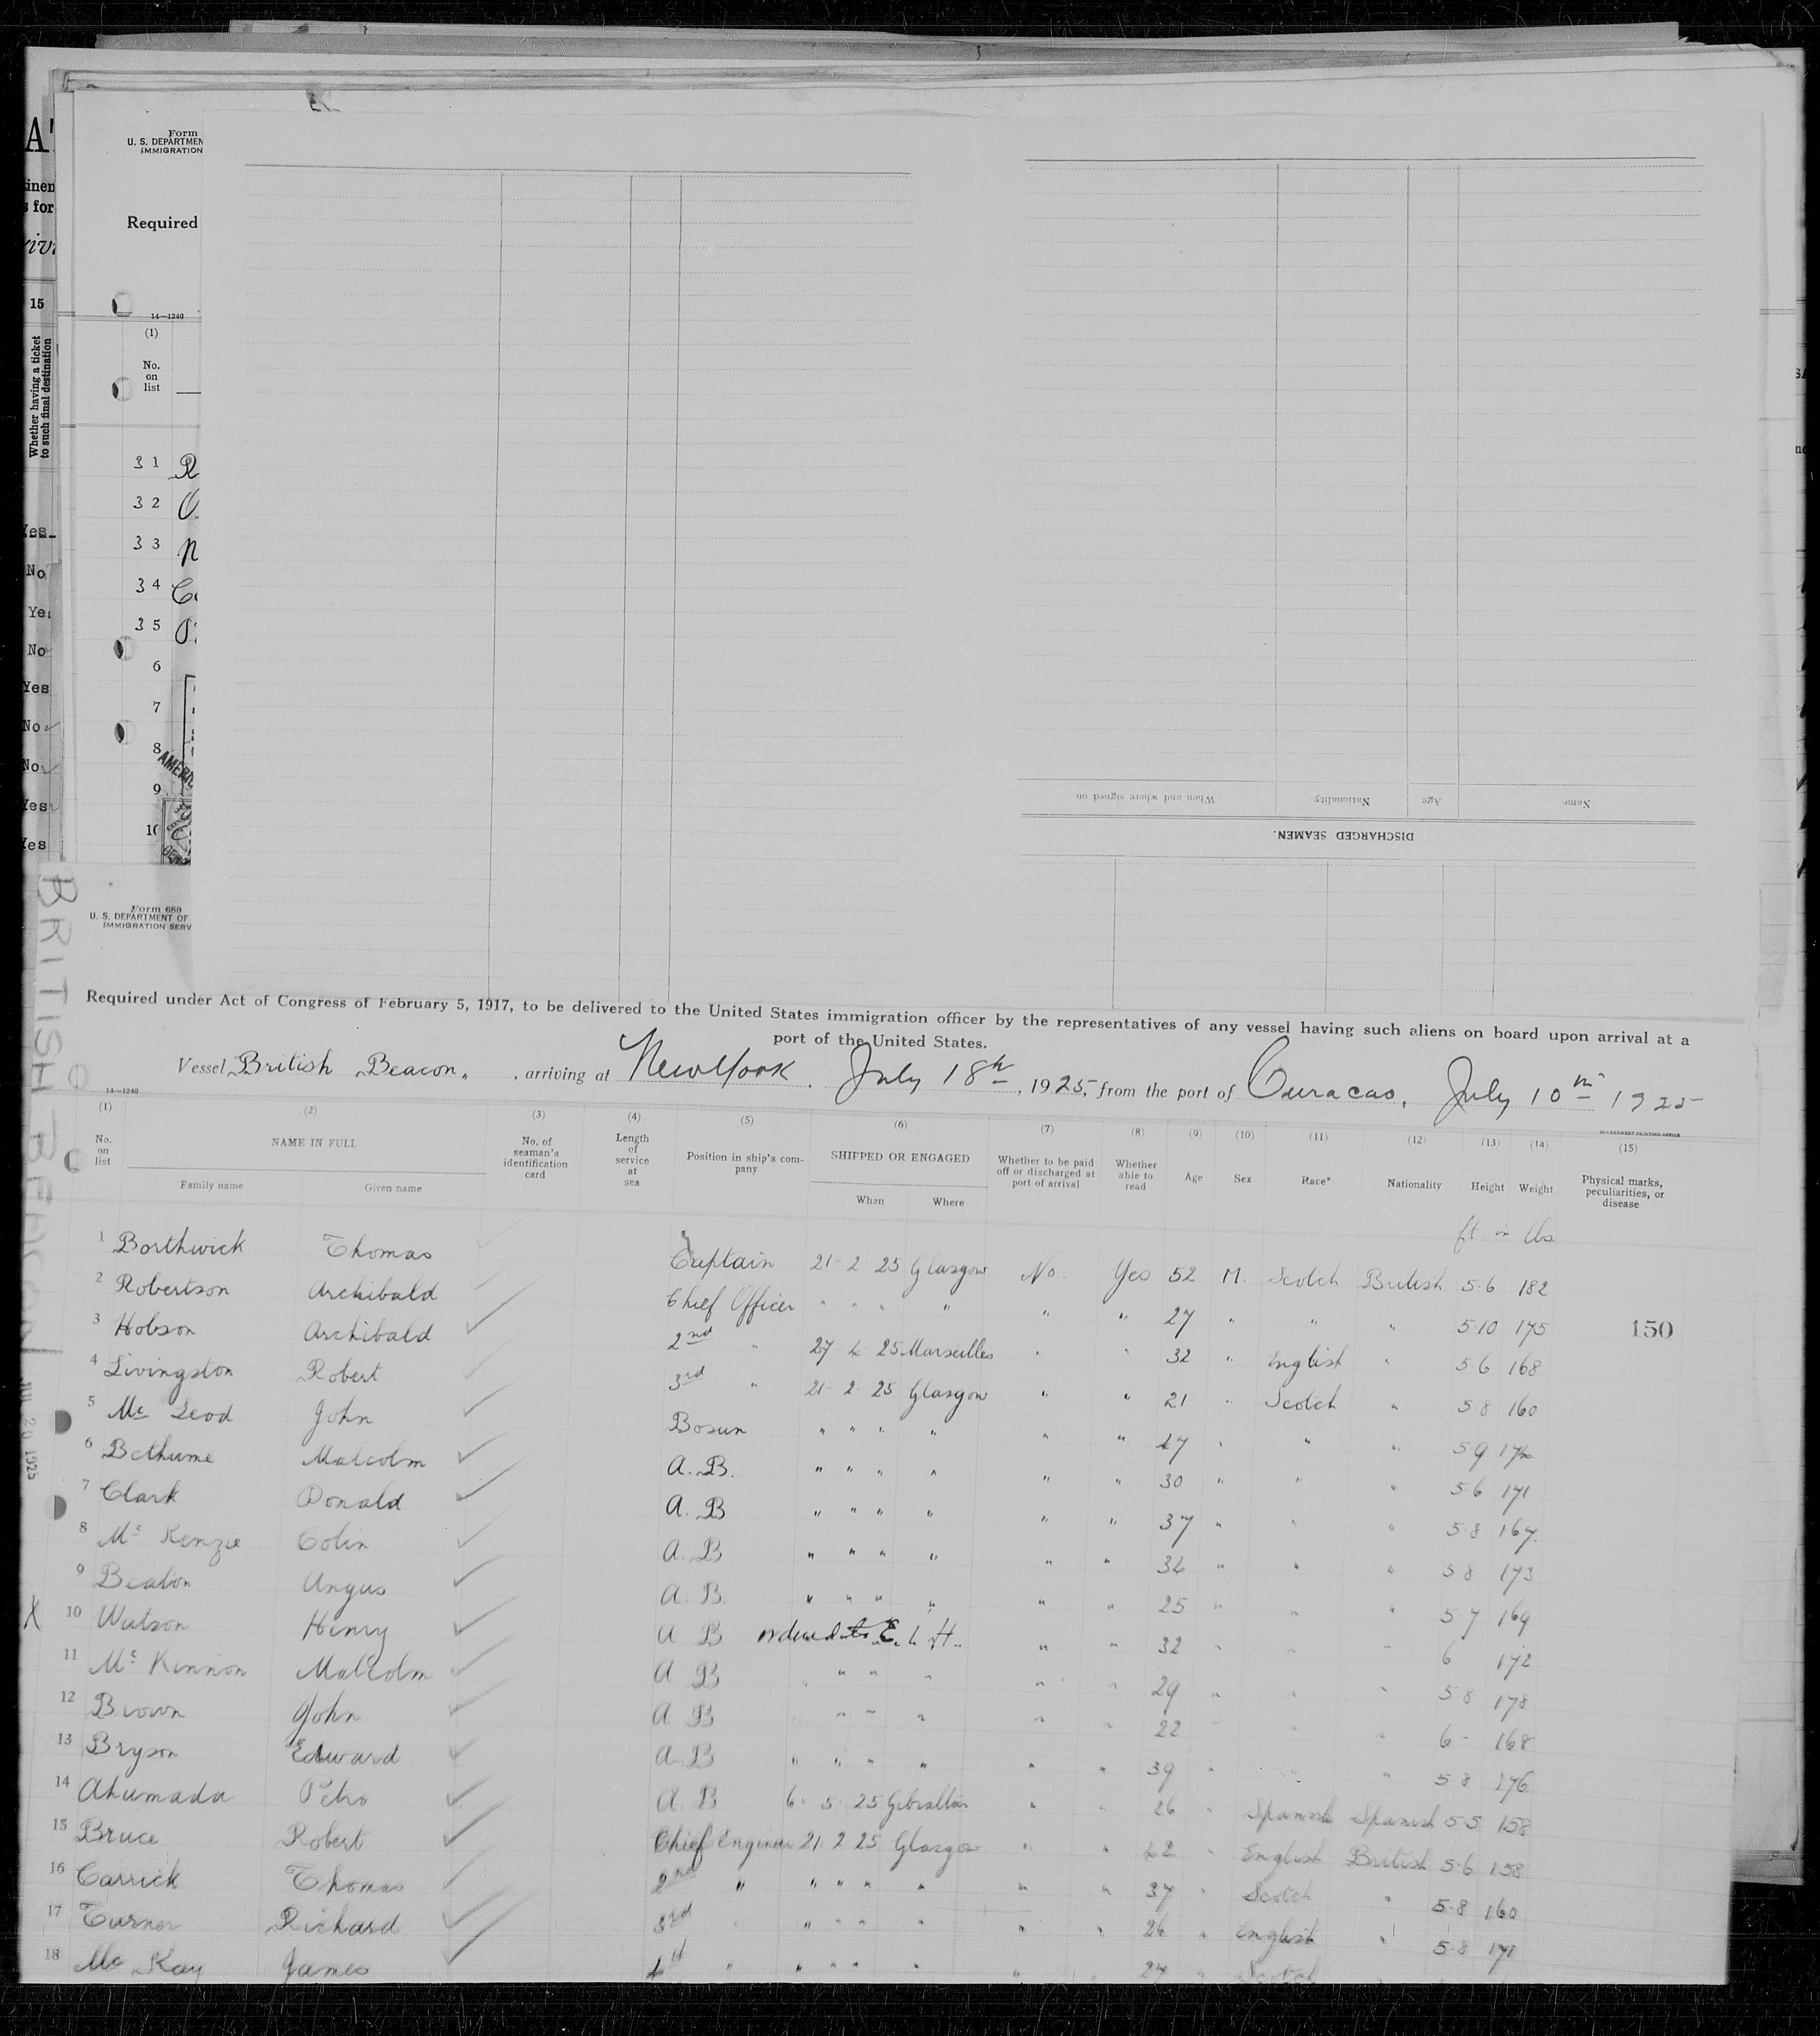 A
inen
s for
15
Whether having a ticket
to such final destination
Yes
No
Ye
No
Yes
No
No
Yes
Yes
Form
U. S. DEPARTMEN
IMMIGRATION
Required
14—1240
(1)
No.
on
list
31 R
32
33
34
35
6
7
8
9
10
Form 680
U. S. DEPARTMENT OF
IMMIGRATION SERV
When and where signed on Nationality Age Name
DISCHARGED SEAMEN.
BRITISH BEACON JUL 20 1925
Required under Act of Congress of February 5, 1917, to be delivered to the United States immigration officer by the representatives of any vessel having such aliens on board upon arrival at a
port of the United States.
Vessel British Beacon, , arriving at New York. July 18th, 1925, from the port of Curacao, July 10th 1925
14—1240
GOVERNMENT PRINTING OFFICE
(1) (2) (3) (4) (5) (6) (7) (8) (9) (10) (11) (12) (13) (14) (15)
No. on list NAME IN FULL Family name Given name No. of seaman's identification card Length of service at sea Position in ship's company SHIPPED OR ENGAGED When Where Whether to be paid off or discharged at port of arrival Whether able to read Age Sex Race* Nationality Height Weight Physical marks, peculiarities, or disease
ft in lbs
1 Borthwick Thomas Captain 21-2 25 Glasgow No. Yes 52 M. Scotch British 5·6 182
2 Robertson Archibald Chief Officer " " " " " " 27 " " " 5·10 175
150
3 Hobson Archibald 2nd " 27 4 25 Marseilles " " 32 " English " 5 6 168
4 Livingston Robert 3rd " 21-2 25 Glasgow " " 21 " Scotch " 5·8 160
5 Mc Leod John Bosun " " " " " " 47 " " " 5 9
6 Bethune Malcolm A. B. " " " " " " 30 " " " 5·6 171
7 Clark Donald A. B " " " " " " 37 " " " 5·8 167
8 Mc Kenzie Colin A. B " " " " " " 34 " " " 5 8 173
9 Beaton Angus A. B. " " " " " " 25 " " " 5 7 169
X 10 Watson Henry A B " " 32 " " " 6 172
11 Mc Kinnon Malcolm A B " " " " " 29 " " " 5 8 178
12 Brown John A B " " " " " 22 " " 6 - 168
13 Bryson Edward A B " " " " " " 39 " " " 5 8 176
14 Ahumada Petro A. B 6· 5· 25 Gibraltar " " 26 " Spanish Spanish 5·5 158
15 Bruce Robert Chief Engineer 21 2 25 Glasgow " " 42 " English British 5·6 158
16 Carrick Thomas 2nd " " " " " " " 37 " Scotch " 5·8 160
17 Turner Richard 3rd " " " " " " " 26 " English " 5·8 171
18 Mc Kay James 4th " " " " " " " 27 " Scotch